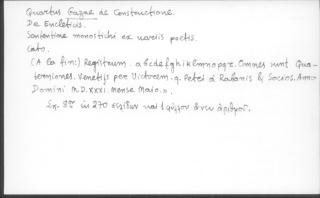 Quartus Gazae de Constructione.
De Encleticis.
Sententiae monostichi ex variis poetis.
Cato.
(A la fin:) Registrum. a b c d e f g h i k l m n o p q r. Omnes sunt Qua-
terniones. Venetijs per Victorem. q. Petri a Rabanis & Socios. Anno
Domini M.D.XXXI. Mense Maio.
Σχ. 8ον ἐκ 270 σελίδων καὶ 1 φύλλον ἄνευ ἀριθμοῦ.